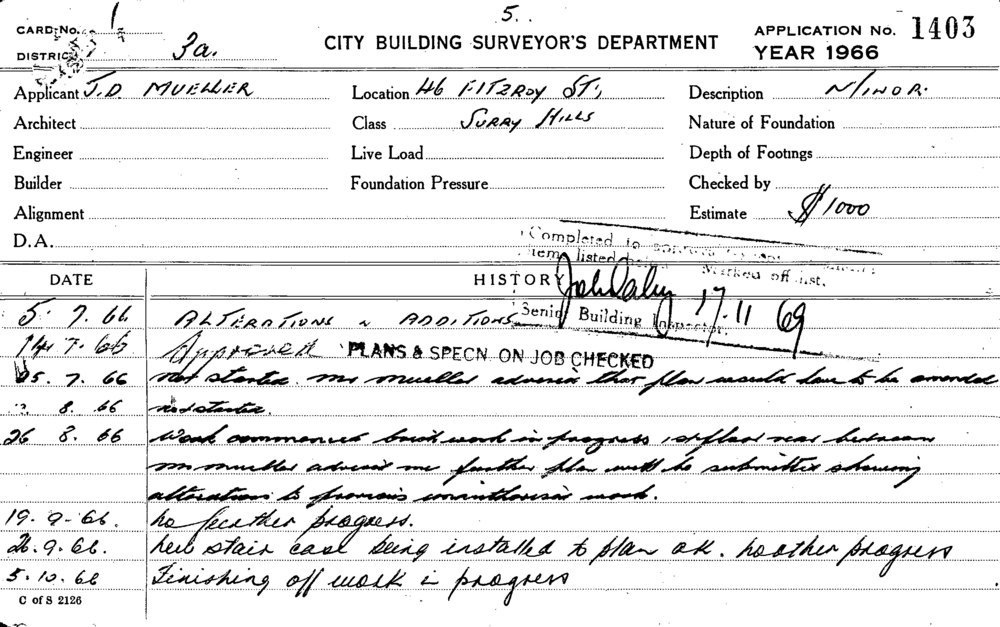 5.
CARD No. 1
CITY BUILDING SURVEYOR'S DEPARTMENT
APPLICATION No. 1403
DISTRICT 3a.
YEAR 1966
Applicant J.D. MUELLER Location 46 FITZROY ST, Description MINOR.
Architect Class SURRY HILLS Nature of Foundation
Engineer Live Load Depth of Footings
Builder Foundation Pressure Checked by
Alignment Estimate $1000
D.A.
Completed to
items listed Marked off list.
John Daley 17.11 69
Senior Building Inspector.
DATE HISTORY
5. 7. 66 ALTERATIONS & ADDITIONS
14.7.66 Approved PLANS & SPECN. ON JOB CHECKED
25. 7. 66 not started. Mr Mueller advised that plan would have to be amended
8. 66 not started.
26 8. 66 Work commenced brick work in progress 1st floor rear
Mr Mueller advised me further plan will be submitted showing
alterations to previous unauthorised work.
19. 9. 66. no further progress.
26. 9. 66. new stair case being installed to plan OK. no other progress
5. 10. 66 Finishing off work in progress
C of S 2126